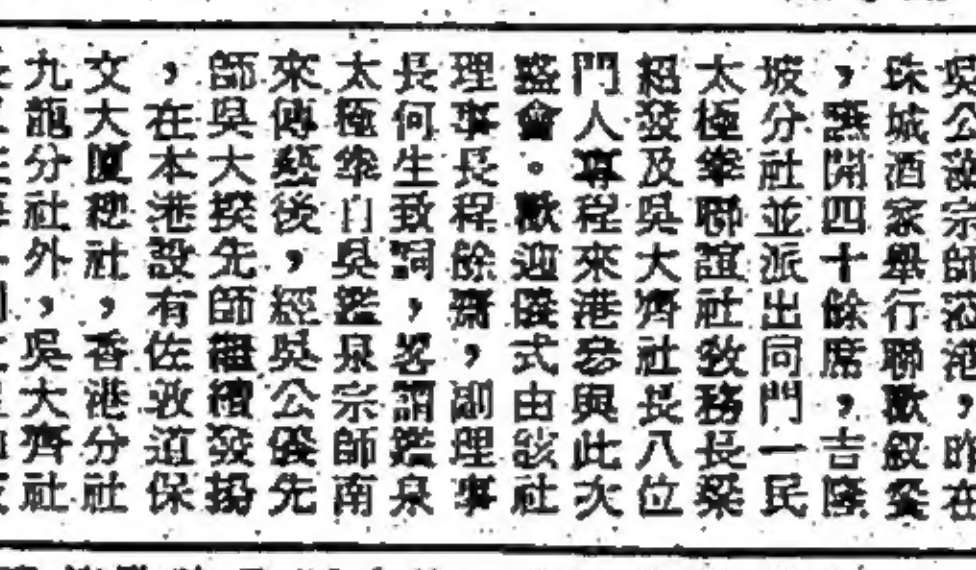 吳公藻宗師蒞港，昨在
珠城酒家舉行聯歡叙餐
，讌開四十餘席，吉隆
坡分社並派出同門一民
太極拳聯誼社教務長梁
紹發及吳大齊社長八位
門人專程來港參與此次
盛會。歡迎儀式由該社
理事長程餘齋，副理事
長何生致詞，畧謂鑑泉
太極拳自吳鑑泉宗師南
來傳藝後，經吳公儀先
師吳大揆先師繼續發揚
，在本港設有佐敦道保
文大廈總社，香港分社
九龍分社外，吳大齊社